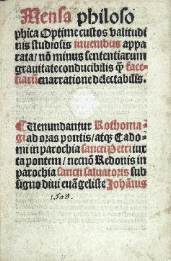 Mensa philoso
phica Optime custos valitudi
nis studiosis iuvenibus appa
rata / nõ minus sententiarum
gravitate conducibilis q̃ face
tiarũ enarratione delectabilis.
¶ Venundantur Rothoma
gi ad oras pontis / atq̃ Cado
mi in parochia sancti Petri iux
ta pontem / necnõ Redonis in
parochia sancti salvatoris sub
signo divi euãgeliste Johãnis